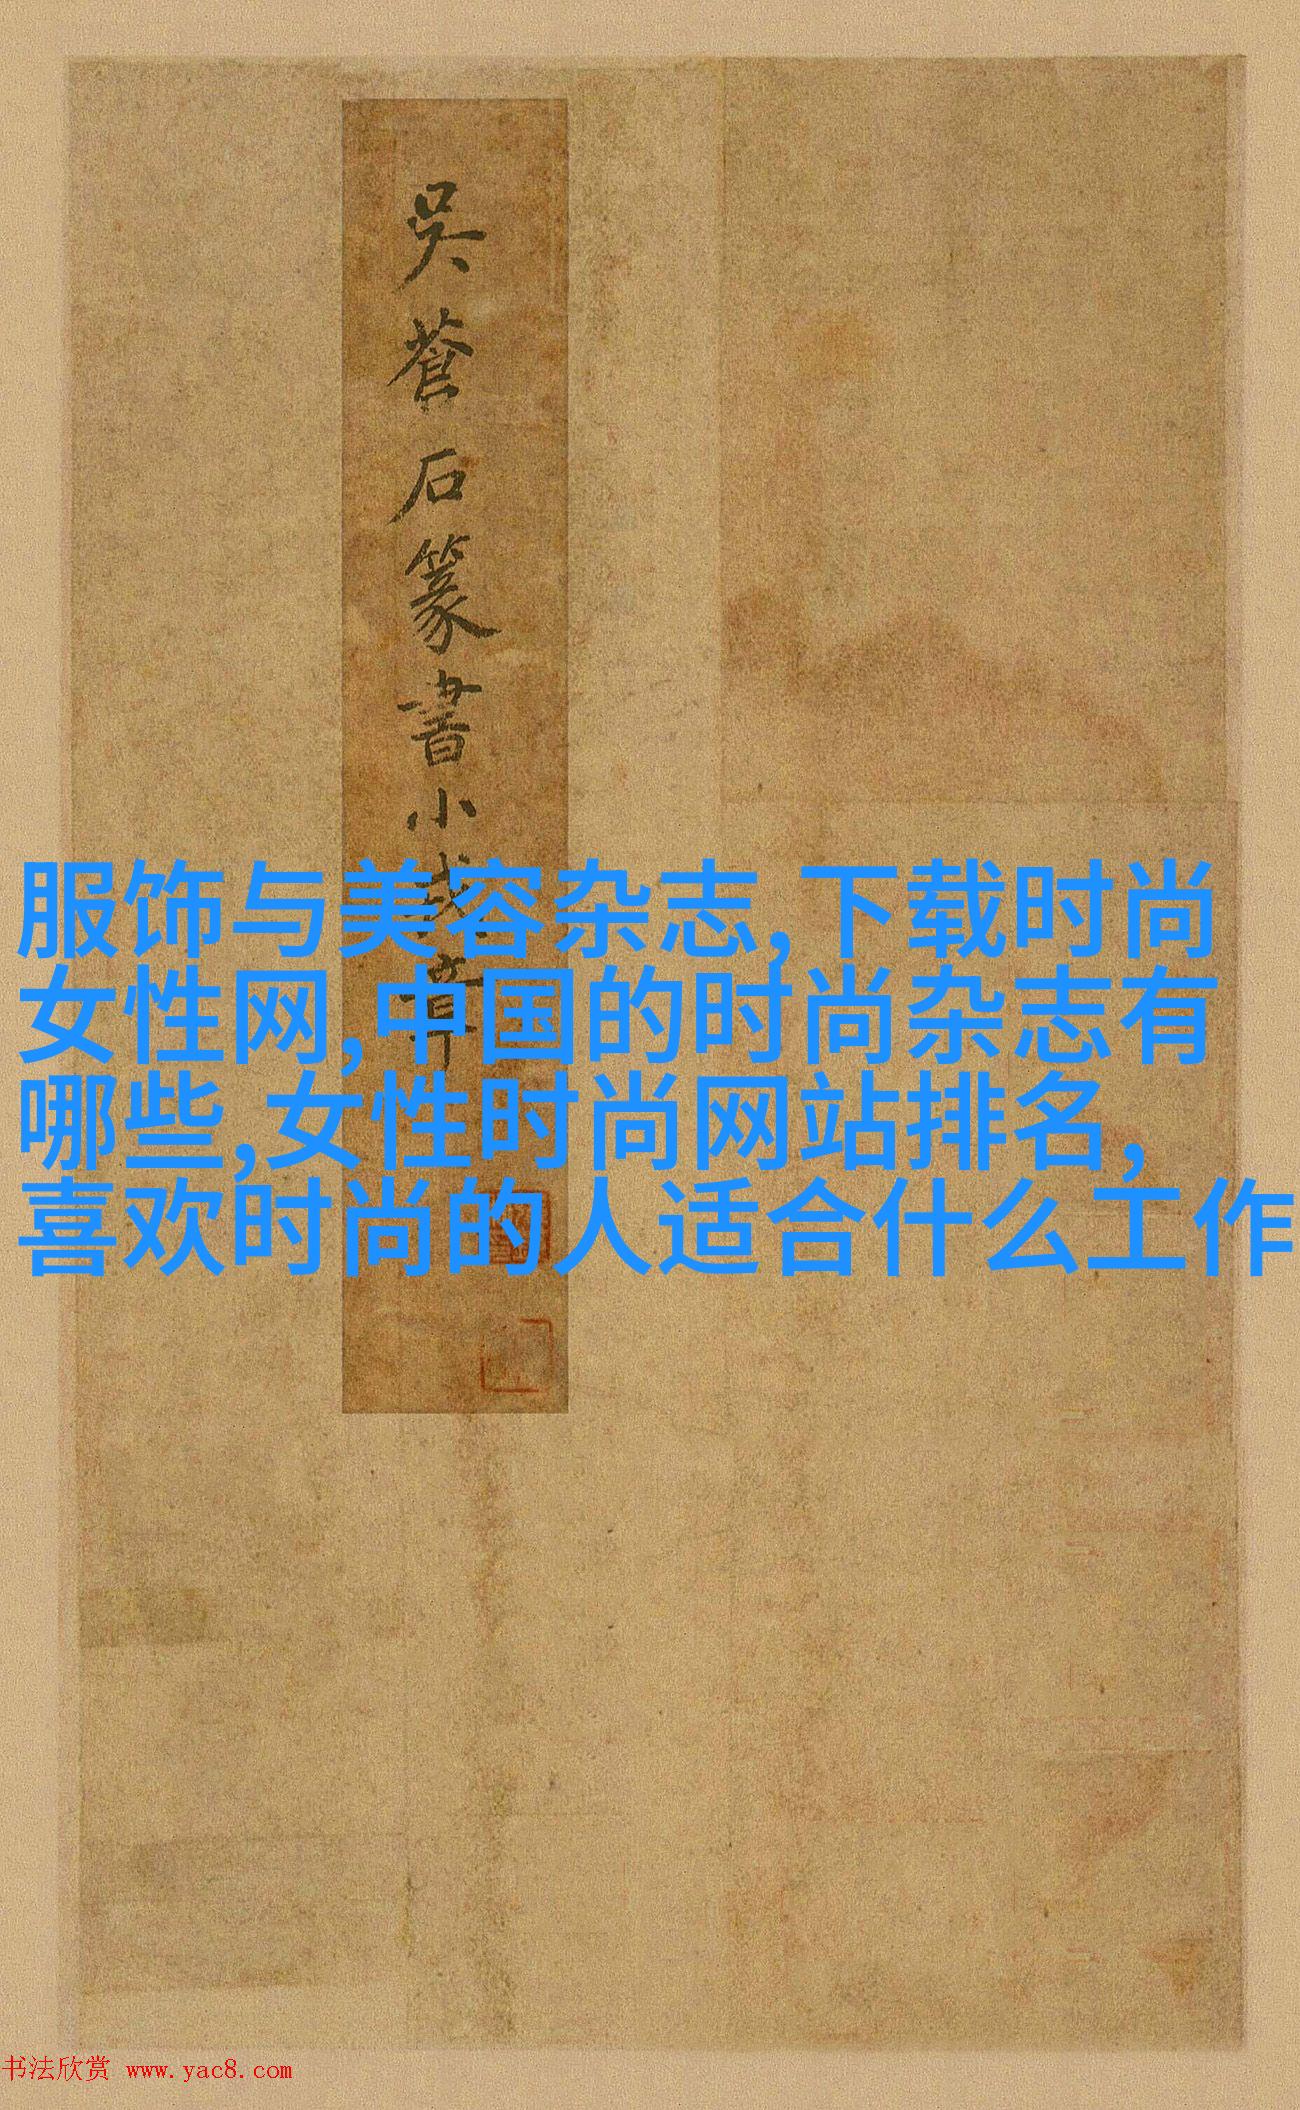 吳蒼石篆書小戔
服饰与美容杂志,下载时尚
女性网,中国的时尚杂志有
哪些,女性时尚网站排名,
喜欢时尚的人适合什么工作
书法欣赏 www.yac8.com